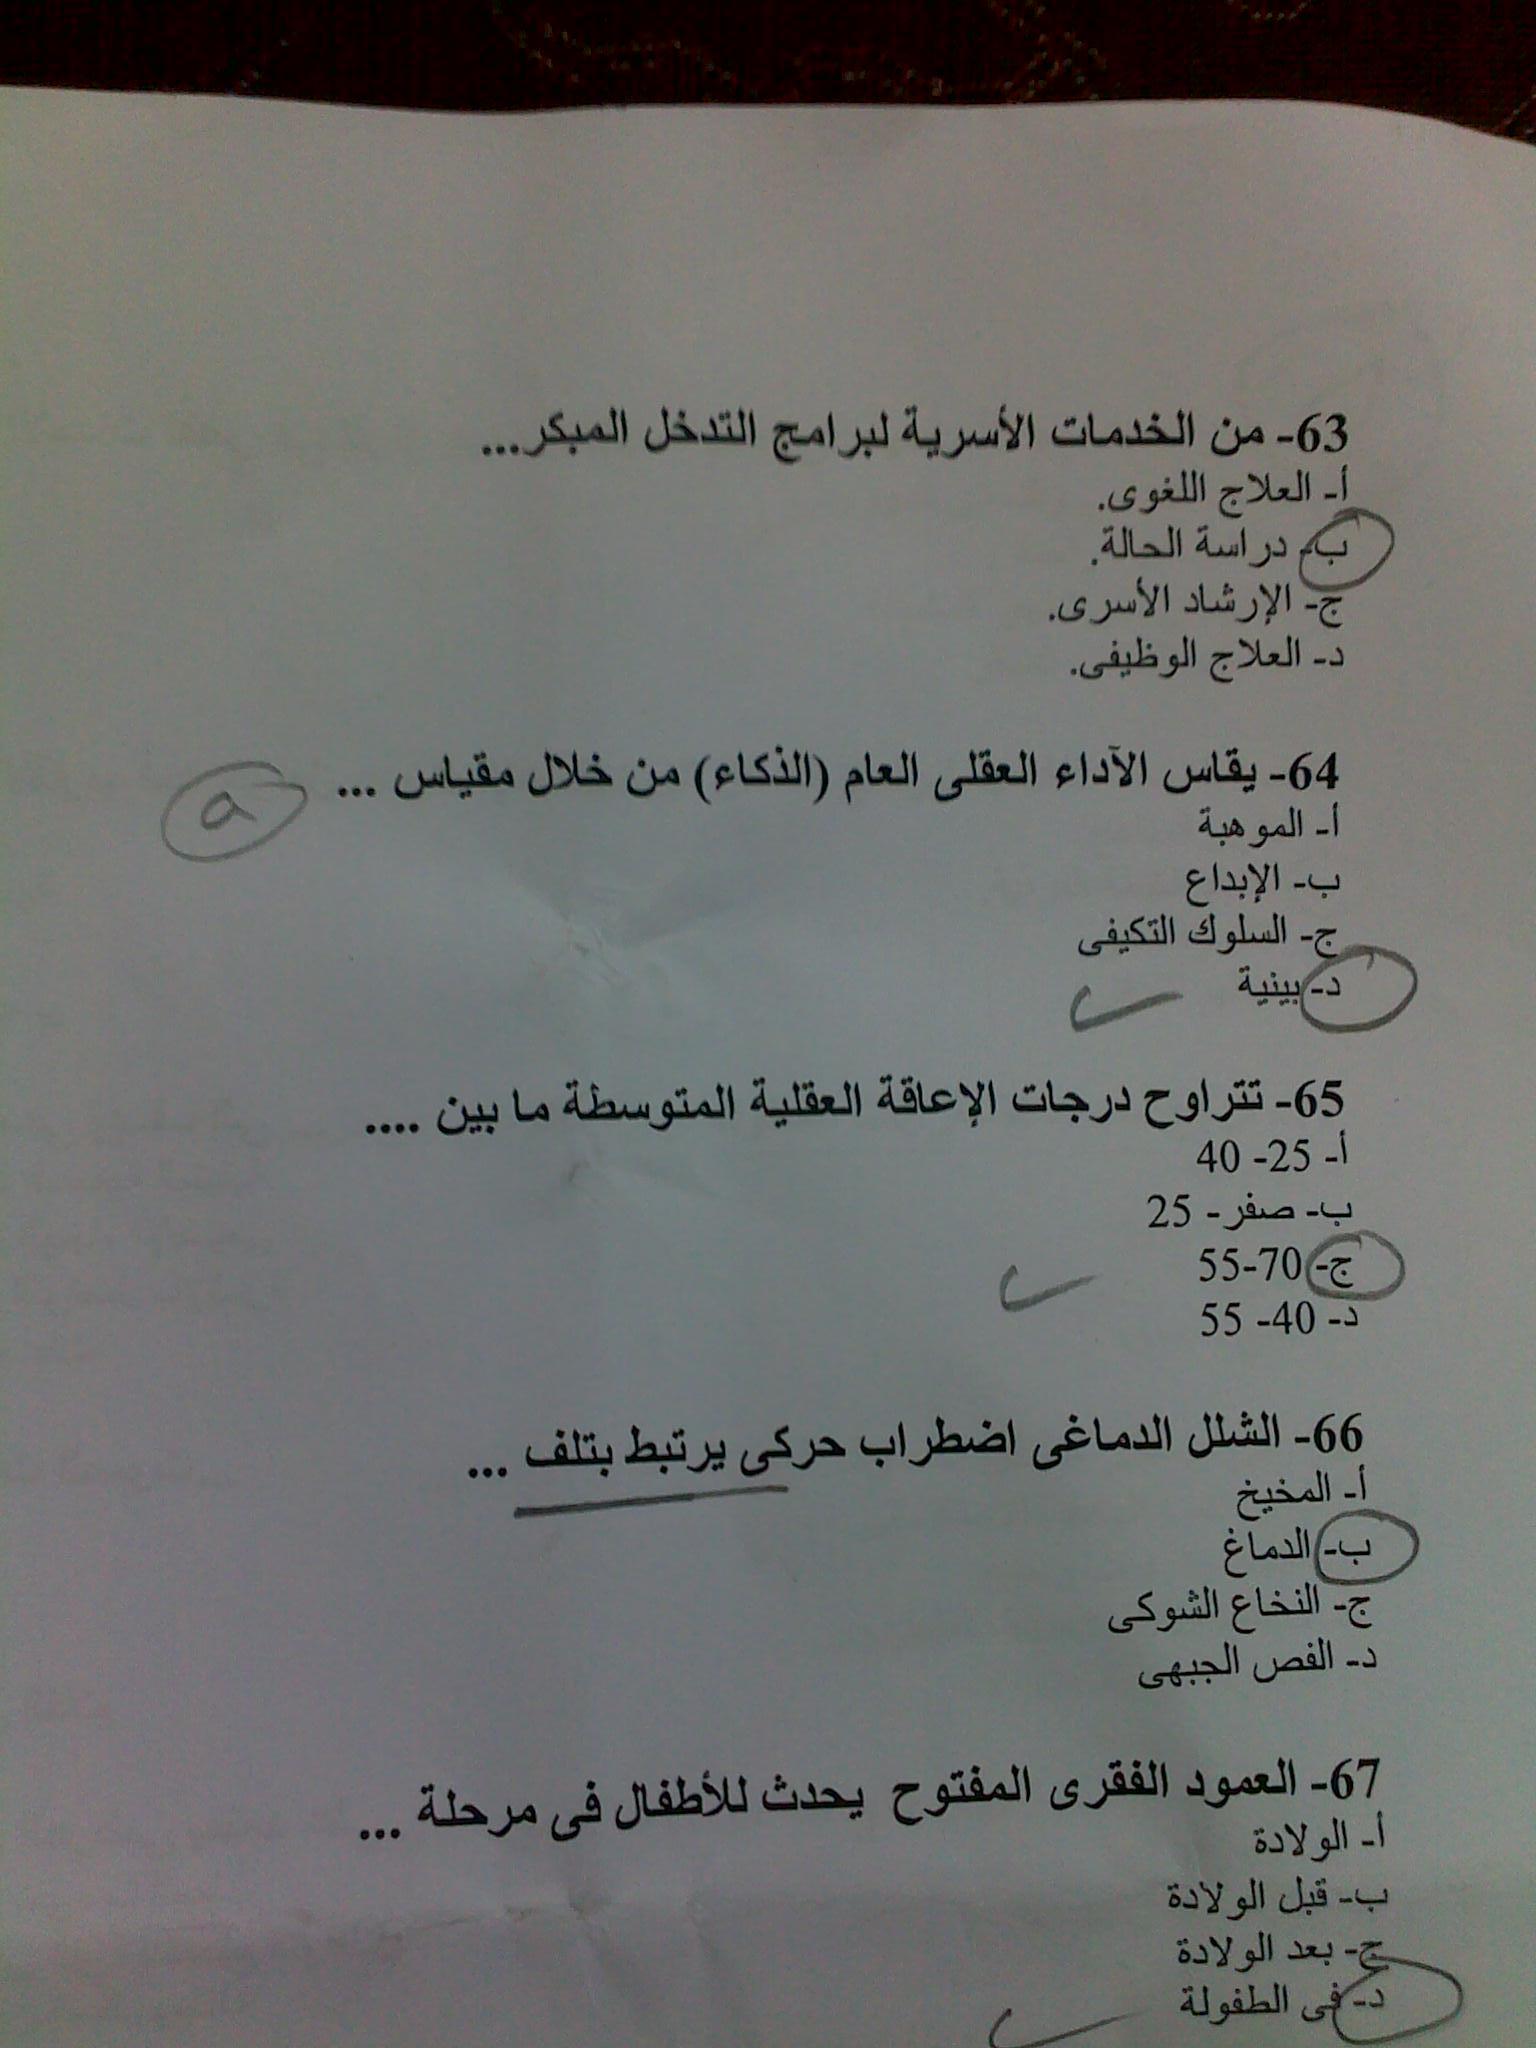 63- من الخدمات الأسرية لبرامج التدخل المبكر...
أ- العلاج اللغوى.
ب- دراسة الحالة.
ج- الإرشاد الأسرى.
د- العلاج الوظيفى.
64- يقاس الآداء العقلى العام (الذكاء) من خلال مقياس ...
a
أ- الموهبة
ب- الإبداع
ج- السلوك التكيفى
د- بينية
65- تتراوح درجات الإعاقة العقلية المتوسطة ما بين ....
أ- 25- 40
ب- صفر- 25
ج- 70-55
د- 40- 55
66- الشلل الدماغى اضطراب حركى يرتبط بتلف ...
أ- المخيخ
ب- الدماغ
ج- النخاع الشوكى
د- الفص الجبهى
67- العمود الفقرى المفتوح يحدث للأطفال فى مرحلة ...
أ- الولادة
ب- قبل الولادة
ج- بعد الولادة
د- فى الطفولة